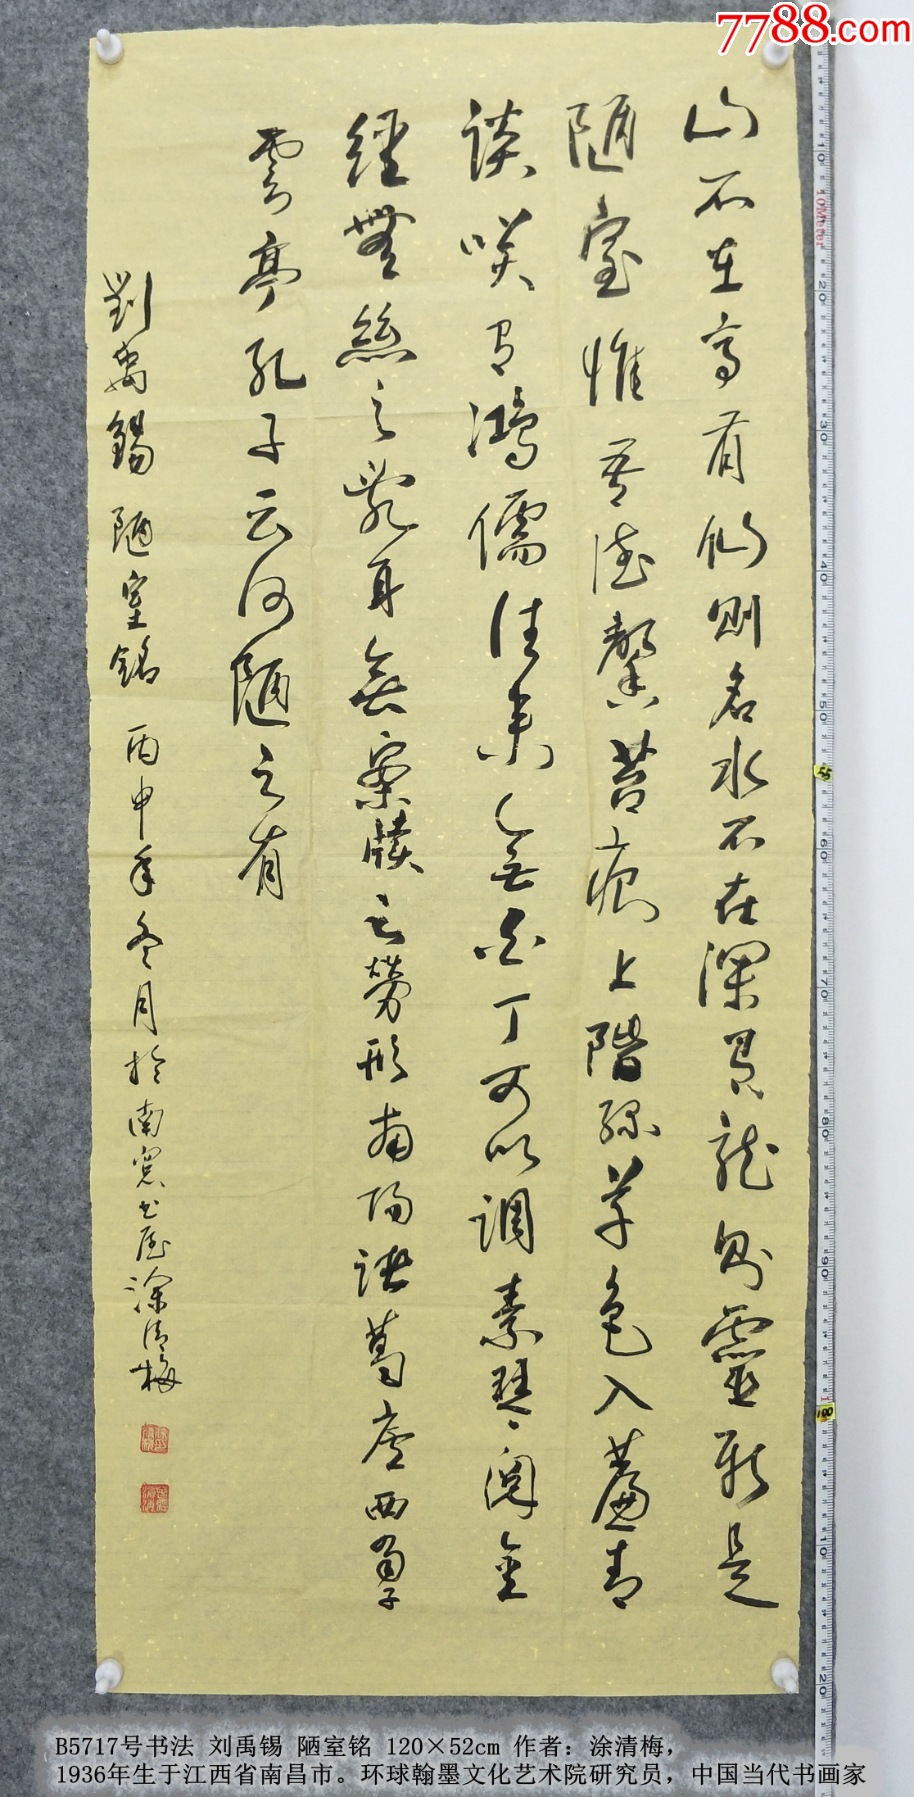 7788.com
山不在高有仙則名水不在深有龍則靈斯是
陋室惟吾德馨苔痕上階綠草色入簾青
談笑有鴻儒往來無白丁可以調素琴閱金
經無絲之亂耳無案牘之勞形南陽諸葛廬西蜀子
雲亭孔子云何陋之有
劉禹錫陋室銘丙申年冬月於南窗書屋涂清梅
10Meter
B5717号书法 刘禹锡 陋室铭 120×52cm 作者：涂清梅，
1936年生于江西省南昌市。环球翰墨文化艺术院研究员，中国当代书画家